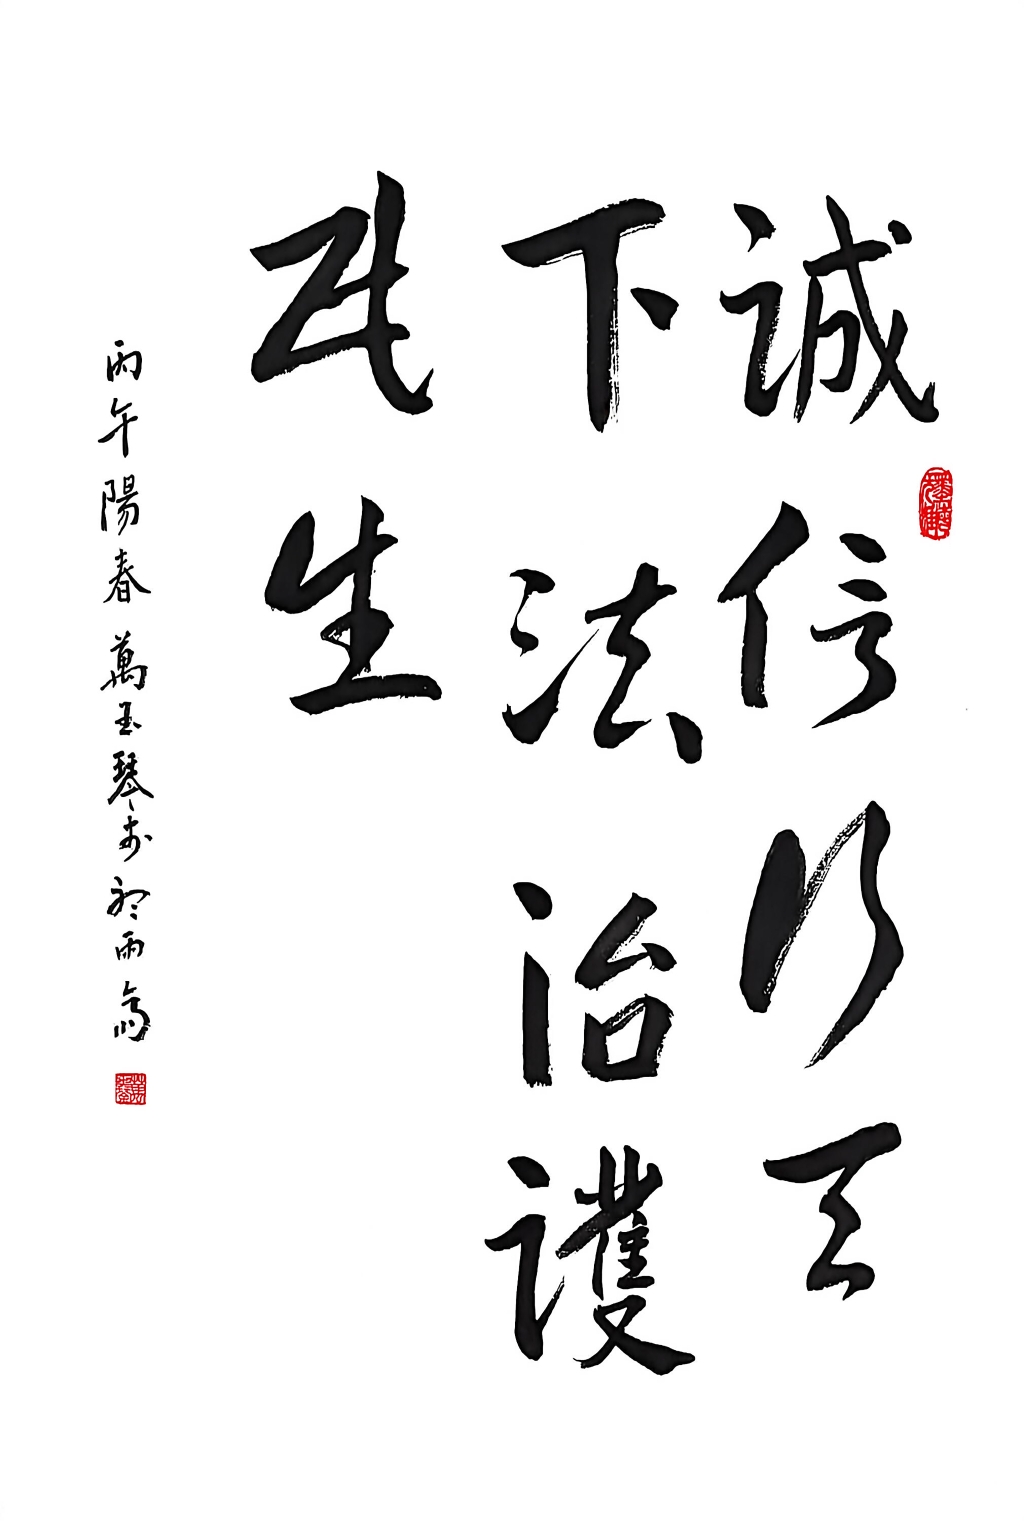 誠信行天
下法治護
民生
丙午陽春萬玉琴書於雨齋